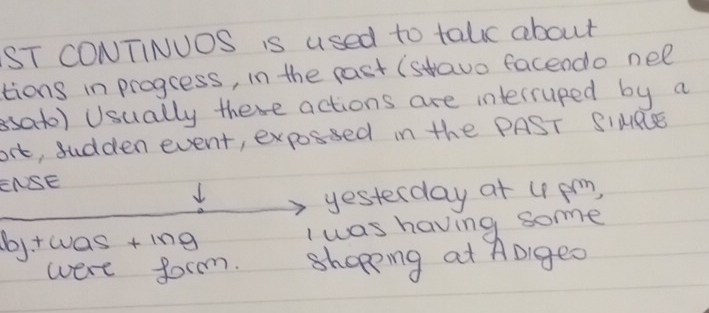 ST CONTINUOS is used to talk about
tions in progress, in the past (stavo facendo nel
ssato) Usually these actions are interruped by a
ort, sudden event, expossed in the PAST SIMPLE
ENSE
yesterday at 4 pm,
bj.+was + ing I was having some
were form. shopping at ADIGEO